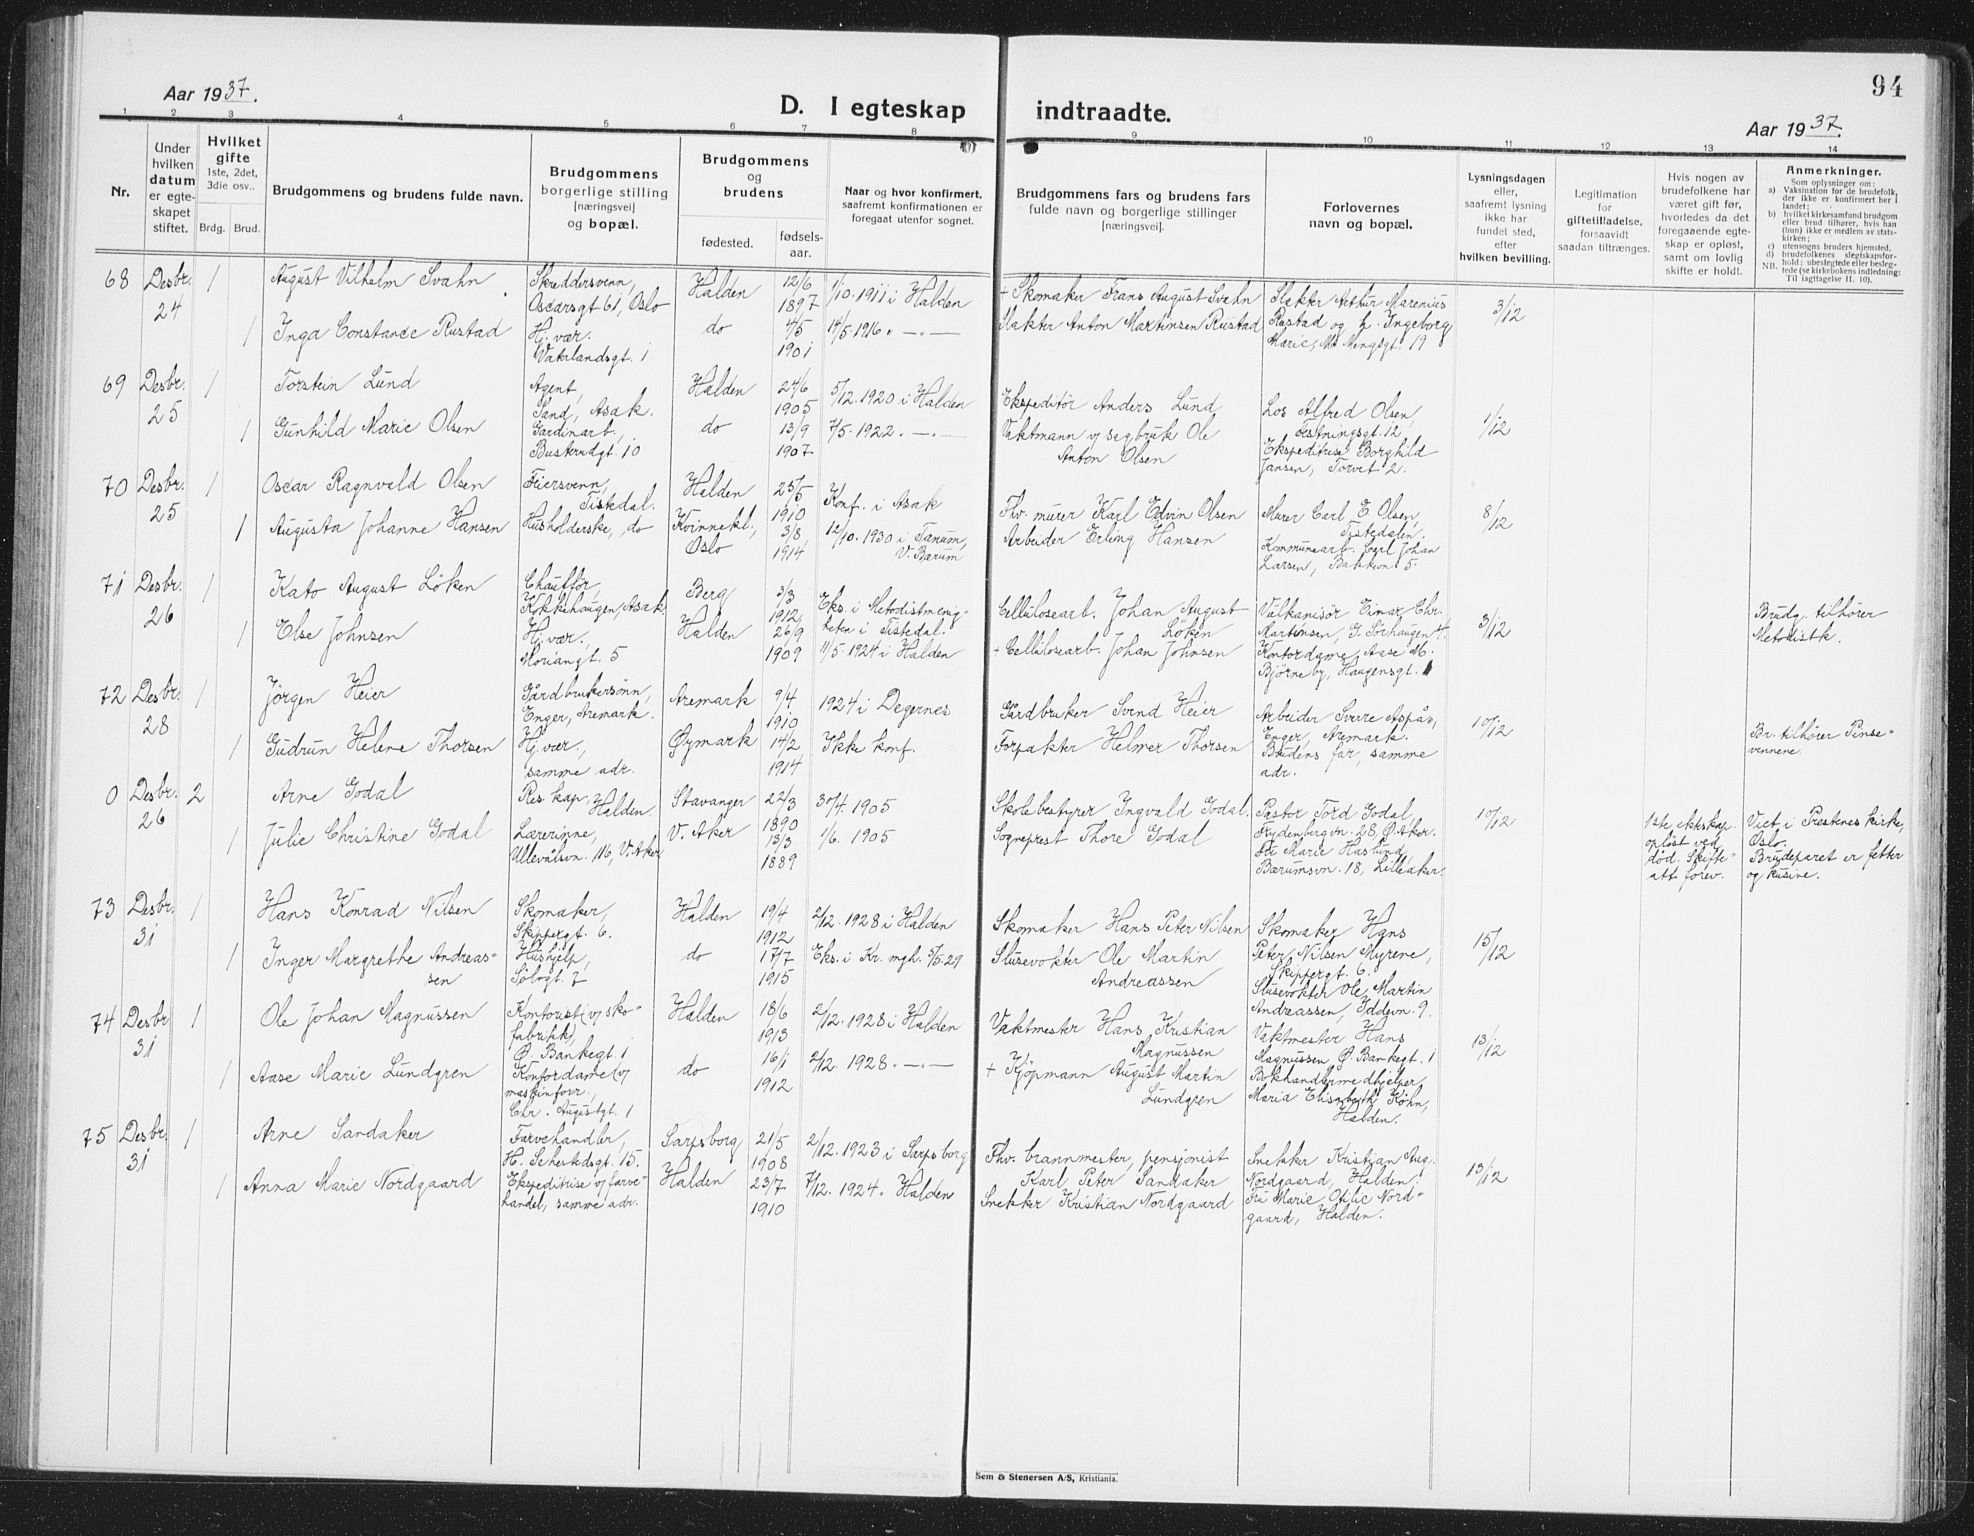 94
Aar 1937.
D. I egteskap indtraadte.
Aar 1937.
1 2 3 4 5 6 7 8 9 10 11 12 13 14
Nr.
Under hvilken datum er egteskapet stiftet.
Hvilket gifte 1ste, 2det, 3die osv..
Brdg. Brud.
Brudgommens og brudens fulde navn.
Brudgommens borgerlige stilling [næringsvei] og bopæl.
Brudgommens og brudens
fødested.
fødselsaar.
Naar og hvor konfirmert, saafremt konfirmationen er foregaat utenfor sognet.
Brudgommens fars og brudens fars fulde navn og borgerlige stillinger [næringsvei].
Forlovernes navn og bopæl.
Lysningsdagen eller, saafremt lysning ikke har fundet sted, efter hvilken bevilling.
Legitimation for giftetilladelse, forsaavidt saadan tiltrænges.
Hvis nogen av brudefolkene har været gift før, hvorledes da det foregaaende egteskap er opløst, samt om lovlig skifte er holdt.
Anmerkninger.
Som oplysninger om:
a) Vaksination for de brudefolk, der ikke er konfirmert her i landet;
b) hvilket kirkesamfund brudgom eller brud tilhører, hvis han (hun) ikke er medlem av statskirken;
c) utensogns bruders hjemsted,
d) brudefolkenes slegtskapsforhold: ubeslegtede eller beslegtede (se kirkebokens indledning: Til iagttagelse II. 10).
NB.
68 Desbr. 24 1 August Vilhelm Svahn Skreddersvenn, Oscarsgt 61, Oslo Halden 12/6 1897 1/10. 1911 i Halden + Skomaker Frans August Svahn Slakter Arthur Marenius Rustad og h. Ingeborg Marie, Mengsgt. 19 3/12
1 Inga Constance Rustad Hj. vær. Vaterlandsgt. 1 do 4/5 1901 14/5 1916 . — . — Slakter Anton Martinsen Rustad
69 Desbr. 25 1 Torstein Lund Agent, Sand, Asak. Halden 24/6 1905 5/12. 1920 i Halden Ekspeditör Anders Lund Los Alfred Olsen, Festningsgt. 12, Ekspeditrise Borghild Jansen, Torvet 2. 1/12
1 Gunhild Marie Olsen Gardinarb., Busterudgt. 10 do 13/9 1907 7/5. 1922. — . — Vaktmann v/ sagbruk Ole Anton Olsen
70 Desbr. 25 1 Oscar Ragnvald Olsen Feiersvenn, Tistedal. Halden 25/5 1910 Konf. i Asak Fhv. murer Karl Edvin Olsen Murer Carl E. Olsen, Tistedalen. Kommunearb. Carl Johan Larsen, Bakken 5. 8/12
1 Augusta Johanne Hansen Husholderske, do Kvinnekl., Oslo 3/8 1914 12/10. 1930 i Tanum, V. Bærum Arbeider Erling Hansen
71 Desbr. 26 1 Kato August Löken Chauffør, Kokkehaugen, Asak Berg 3/3 1912 Eks. i Metodistmenigheten i Tistedal. Cellulosearb. Johan August Löken Vulkanisör Einar Chr. Martinsen, G. Sörhaugen 4. Kontordame Aase M. Bjørneby, Haugensgt. 1 3/12 Brudg. tilhører Metodistk.
1 Else Johnsen Hj. vær., Moriangt. 5 Halden 26/9 1909 11/5. 1924 i Halden + Cellulosearb. Johan Johnsen
72 Desbr. 28 1 Jörgen Heier Gårdbrukersønn, Enger, Aremark. Aremark 9/4 1910 1924 i Degernes Gårdbruker Svend Heier Arbeider Sverre Aspås, Enger, Aremark. Brudens far, samme adr. 10/12 Br. tilhører Pinsevennene.
1 Gudrun Helene Thorsen Hj. vær., samme adr. Øymark 14/2 1914 Ikke konf. Forpakter Helmer Thorsen
0 Desbr. 26 2 Arne Godal Res. kap., Halden. Stavanger 22/3 1890 30/4. 1905 Skolebestyrer Ingvald Godal. Pastor Tord Godal, Frydenbergvn. 28, Ø. Aker. Fr. Marie Haslund, Bærumsvn. 18, Lilleaker. 10/12 1ste ekteskap opløst ved död. Skifteatt forev. Viet i Prestenes kirke, Oslo. Brudeparet er fetter og kusine.
1 Julie Christine Godal Lærerinne, Ullevålsvn. 116, V. Aker V. Aker 13/3 1889 1/6. 1905 Sogneprest Thore Godal
73 Desbr. 31 1 Hans Konrad Nilsen Skomaker, Skippergt. 6. Halden 19/4 1912 2/12. 1928 i Halden Skomaker Hans Peter Nilsen Skomaker Hans Peter Nilsen Myrene, Skippergt. 6. Slusevokter Ole Martin Andreassen, Iddevn. 9. 15/12
1 Inger Margrethe Andreassen Hushjelp, Sölvgt. 7 do 17/7 1915 Eks. i Kr. mgh. 5/5.29 Slusevokter Ole Martin Andreassen
74 Desbr 31 1 Ole Johan Magnussen Kontorist (v/ skofabrikk), Ø. Bankegt. 1 Halden 18/6 1913 2/12. 1928 i Halden Vaktmester Hans Kristian Magnussen Vaktmester Hans Magnussen, Ø. Bankegt. 1 Bokhandlermedhjelper Maria Elisabeth Köhn, Halden. 13/12
1 Aase Marie Lundgren Kontordame (v/ maskinforr., Chr. Augustgt. 1 do 16/1 1912 2/12. 1928. — . — + Kjöpmann August Martin Lundgren
75 Desbr. 31 1 Arne Sandaker Farvehandler, H. Sehestedsgt. 15. Sarpsborg 21/5 1908 2/12. 1923 i Sarpsborg Fhv. brannmester, pensjonist Karl Peter Sandaker Snekker Kristian Aug. Nordgaard, Halden. Fru Marie Otilie Nordgaard, Halden. 13/12
1 Anna Marie Nordgaard Ekspeditrise v/ farvehandel, samme adr. Halden 23/7 1910 7/12. 1924. Halden Snekker Kristian Nordgaard
Sem & Stenersen A/S, Kristiania.